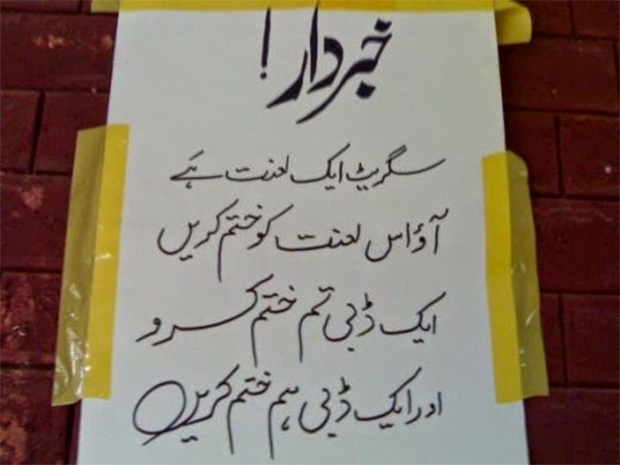 خبردار!
سگریٹ ایک لعنت ہے
آؤ اس لعنت کو ختم کریں
ایک ڈبی تم ختم کرو
اور ایک ڈبی ہم ختم کریں